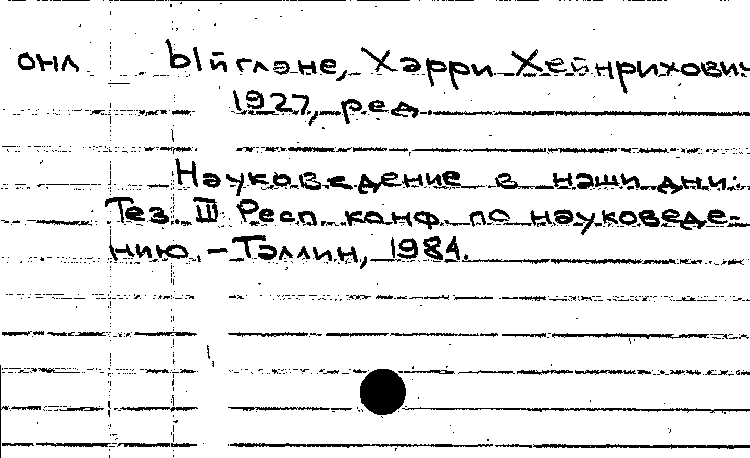 онл Ыйглане, Харри Хейнрихович
1927, ред.
Науковедение в наши дни:
Тез. III Респ. конф. по науковеде-
нию. – Таллин, 1984.